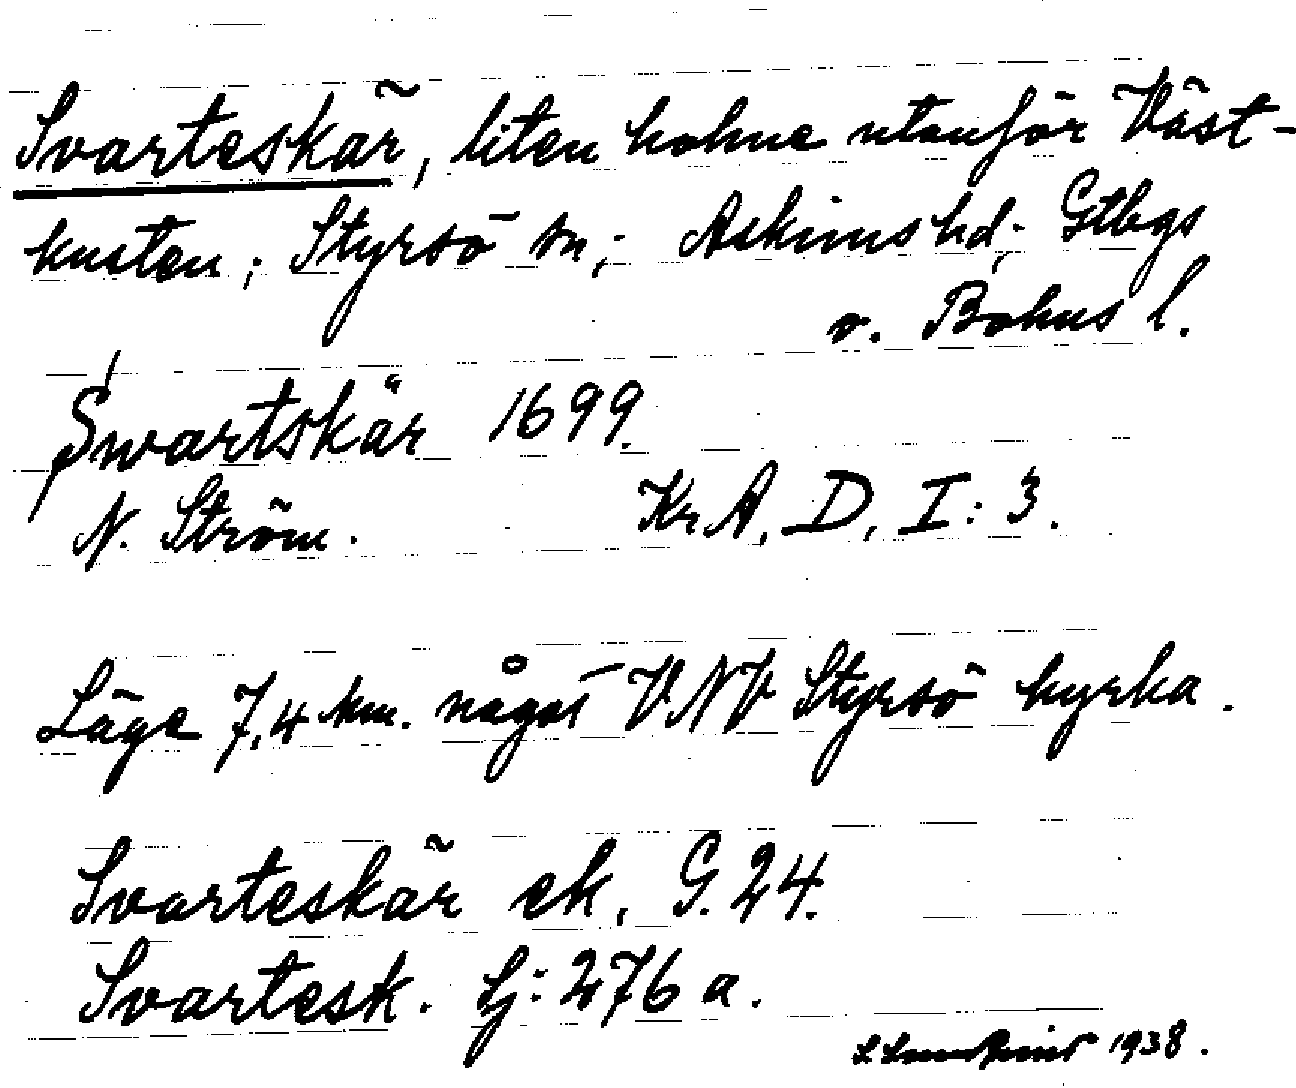 Svarteskär, liten holme utanför Väst-
kusten; Styrsö sn; Askims hd; Gtbgs
o. Bohus l.
Swartskär 1699.
N. Ström. Kr A, D, I: 3.
Läge 7,4 km. något VNV Styrsö kyrka.
Svarteskär ek, G. 24.
Svartesk. Sj: 276 a.
1938.